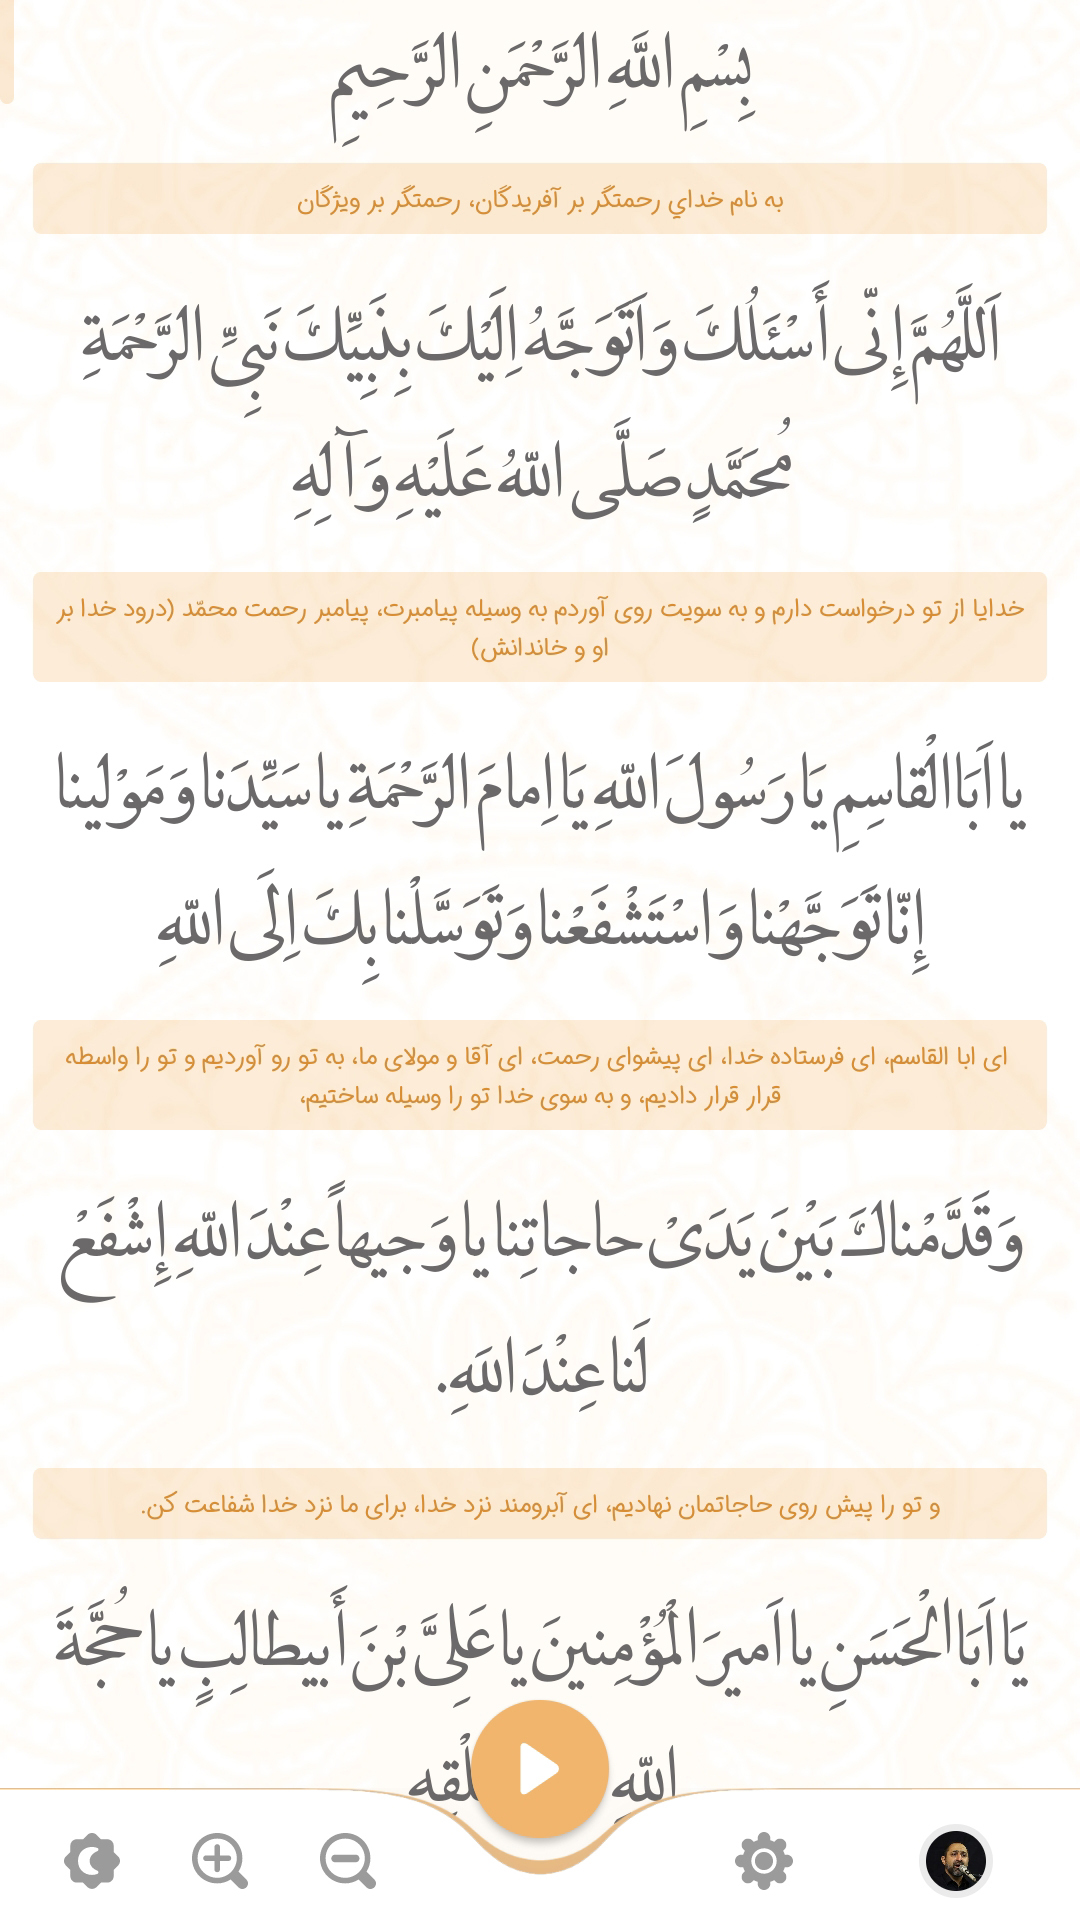 بِسْمِ اللَّهِ الرَّحْمَنِ الرَّحِيمِ
به نام خداي رحمتگر بر آفریدگان، رحمتگر بر ویژگان
اَللَّهُمَّ إِنّى أَسْئَلُكَ وَ اَتَوَجَّهُ اِلَيْكَ بِنَبِيِّكَ نَبِىِّ الرَّحْمَةِ
مُحَمَّدٍ صَلَّى اللّهُ عَلَيْهِ وَ آلِهِ
خدایا از تو درخواست دارم و به سویت روی آوردم به وسیله پیامبرت، پیامبر رحمت محمّد (درود خدا بر
او و خاندانش)
يا اَبَا الْقاسِمِ يَا رَسُولَ اللّهِ يَا اِمامَ الرَّحْمَةِ يا سَيِّدَنا وَ مَوْلينا
إِنّا تَوَجَّهْنا وَ اسْتَشْفَعْنا وَ تَوَسَّلْنا بِكَ اِلَى اللّهِ
ای ابا القاسم، ای فرستاده خدا، ای پیشوای رحمت، ای آقا و مولای ما، به تو رو آوردیم و تو را واسطه
قرار قرار دادیم، و به سوی خدا تو را وسیله ساختیم،
وَ قَدَّمْناكَ بَيْنَ يَدَىْ حاجاتِنا يا وَجيهاً عِنْدَ اللّهِ إِشْفَعْ
لَنا عِنْدَ اللّهِ.
و تو را پیش روی حاجاتمان نهادیم، ای آبرومند نزد خدا، برای ما نزد خدا شفاعت کن.
يَا اَبَا الْحَسَنِ يا اَميرَ الْمُؤْمِنينَ يا عَلِىَّ بْنَ أَبيطالِبٍ يا حُجَّةَ
اللّهِ